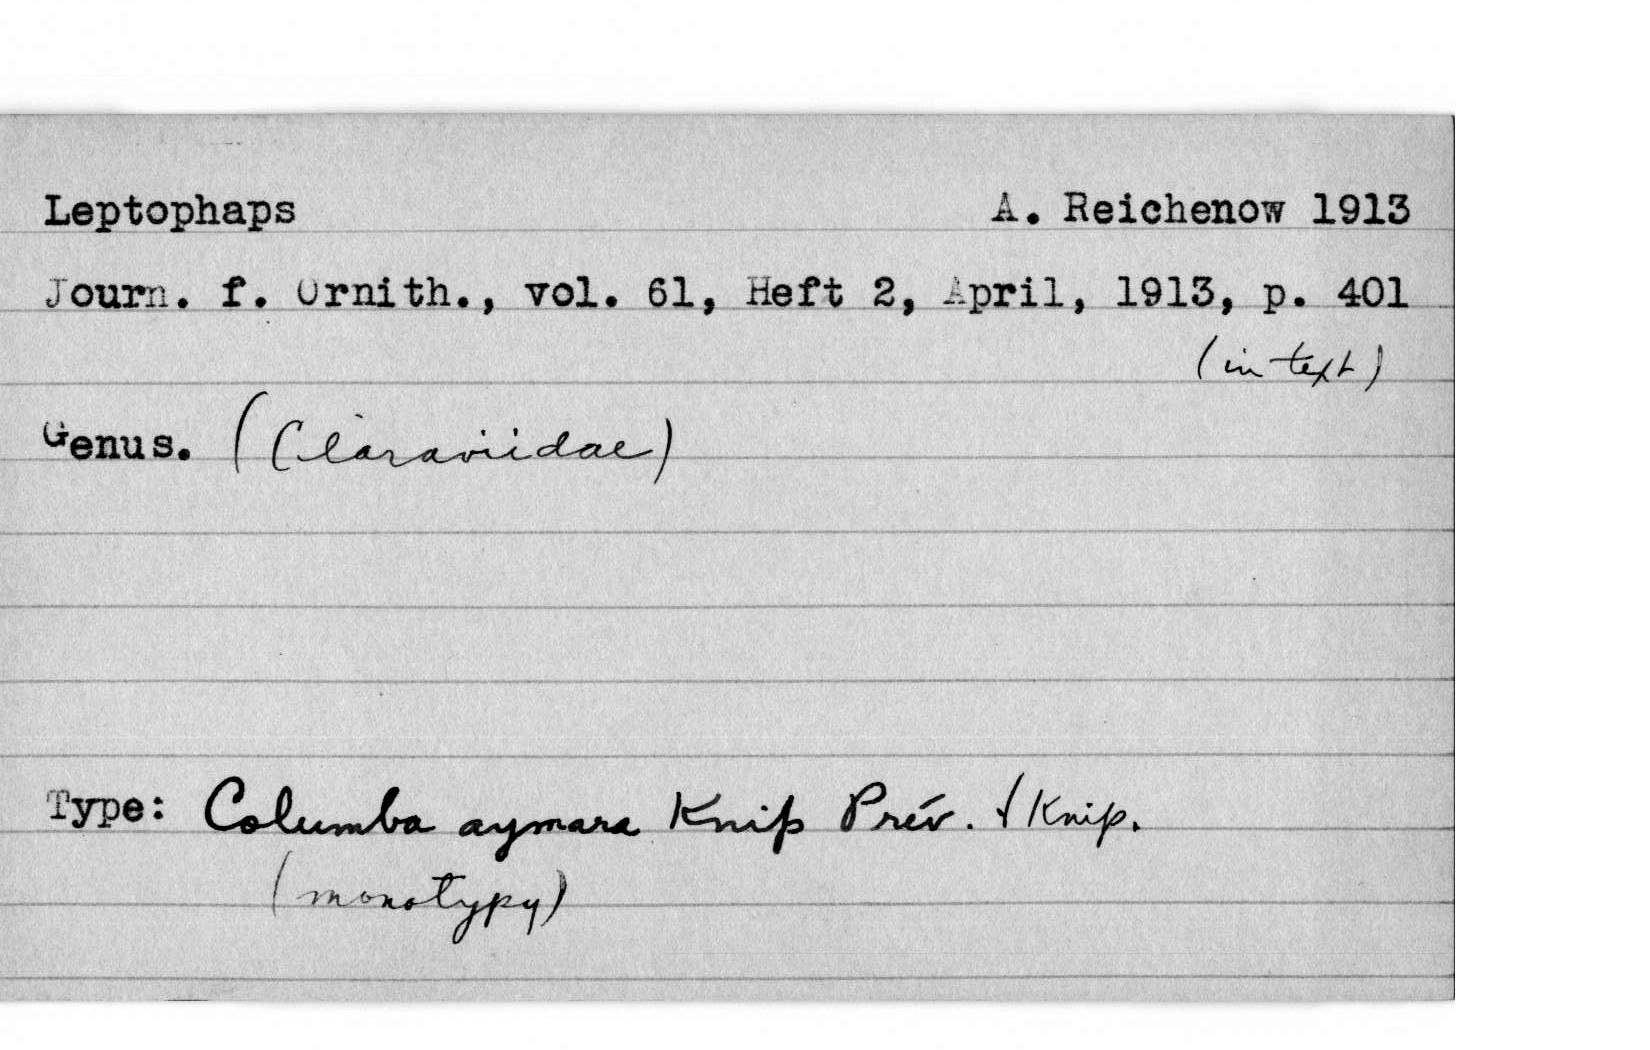 Leptophaps A. Reichenow 1913
Journ. f. Ornith., vol. 61, Heft 2, April, 1913, p. 401
(in text)
Genus. (Claraviidae)
Type: Columba aymara Knip Prév. & Knip.
(monotypy)